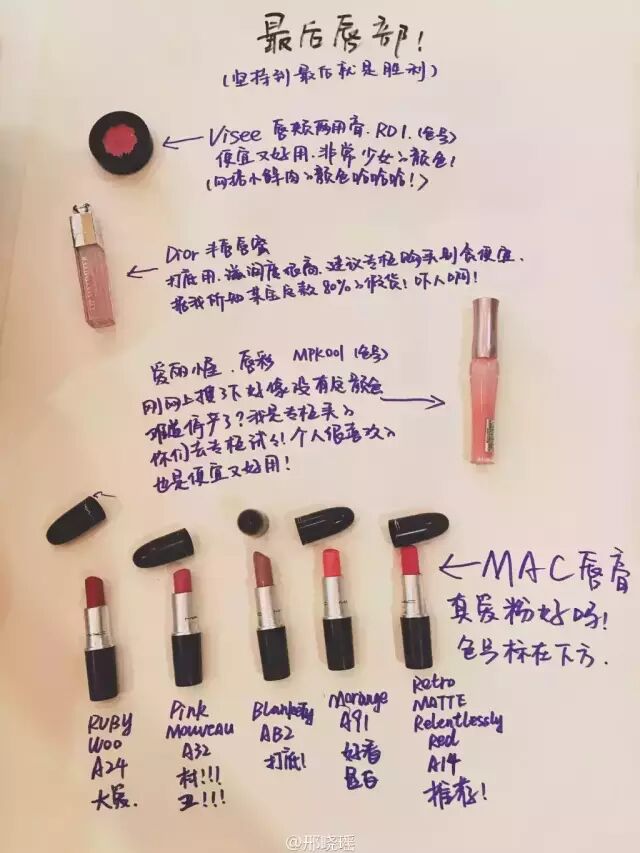 最后唇部!
(坚持到最后就是胜利)
Visee 唇颊两用膏. RD1. (色号)
便宜又好用. 非常少女的颜色!
(向诸小鲜肉的颜色哈哈哈!)
Dior 丰唇唇蜜
打底用. 滋润度很高. 建议专柜购买别贪便宜.
据我所知某宝卖款80%的假货! 吓人啊!
爱丽小屋. 唇彩 MPK001 (色号)
刚网上搜了下好像没有这颜色
难道停产了? 我是专柜买的
你们去专柜试试! 个人很喜欢的
也是便宜又好用!
←MAC唇膏
真爱粉好吗!
色号标在下方.
RUBY
WOO
A24
大爱.
Pink
Mouveau
A32
村!!!
丑!!!
Blankety
AB2
打底!
Morange
A91
好看
显白
Retro
MATTE
Relentlessly
Red
A14
推荐!
@邢晓瑶